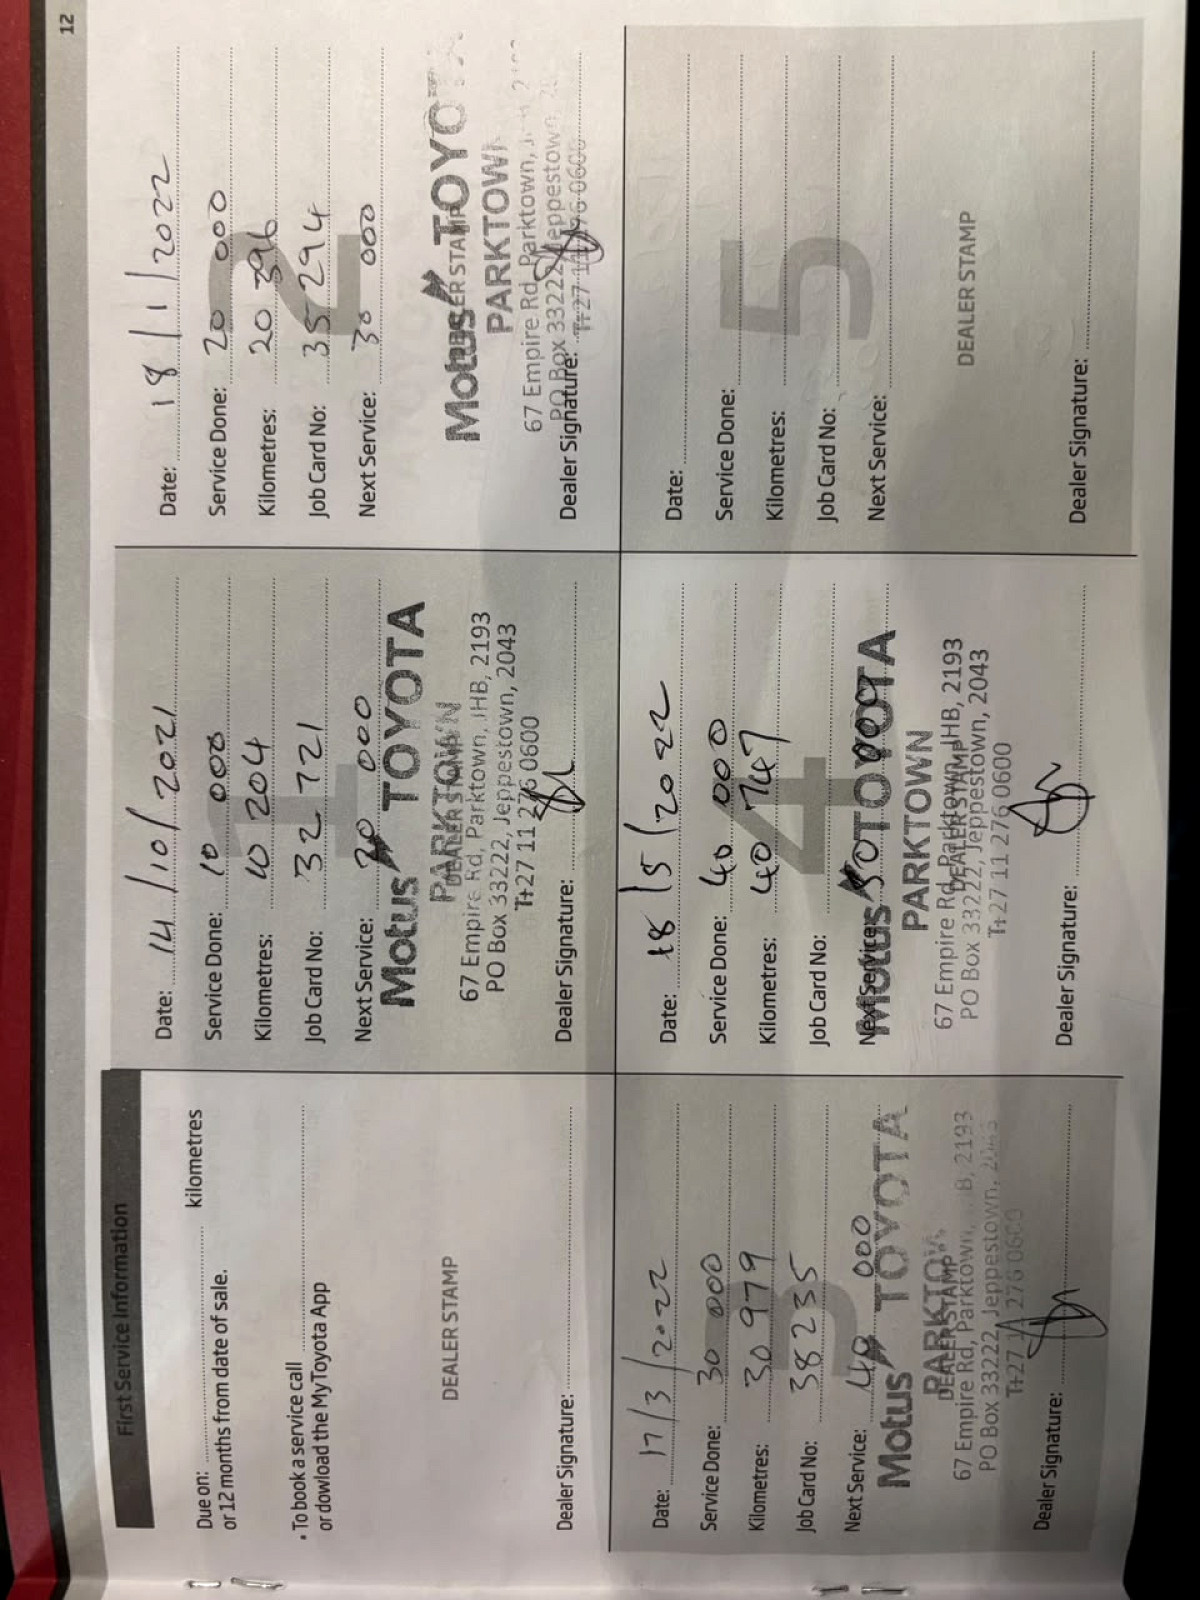 12
First Service Information
Due on: kilometres
or 12 months from date of sale.
• To book a service call
or dowload the MyToyota App
DEALER STAMP
Dealer Signature:
1
Date: 14/10/2021
Service Done: 10 000
Kilometres: 10 204
Job Card No: 32 721
Next Service: 000
Motus TOYOTA
PARKTOWN
DEALER STAMP
67 Empire Rd, Parktown, JHB, 2193
PO Box 33222, Jeppestown, 2043
T+27 11 276 0600
Dealer Signature:
2
Date: 18/1/2022
Service Done: 20 000
Kilometres: 20 396
Job Card No: 35 294
Next Service: 30 000
Motus TOYO
DEALER STAMP
PARKTOWN
67 Empire Rd, Parktown,
PO Box 33222, Jeppestown,
T+27 11 276 0600
Dealer Signature:
3
Date: 17/3/2022
Service Done: 30 000
Kilometres: 30 979
Job Card No: 38235
Next Service: 40 000
Motus TOYOTA
PARKTOWN
DEALER STAMP
67 Empire Rd, Parktown, 2193
PO Box 33222, Jeppestown, 2043
T+27 11 276 0600
Dealer Signature:
4
Date: 18/5/2022
Service Done: 40 000
Kilometres: 40 747
Job Card No:
Next Service: 50 000
Motus TOYOTA
PARKTOWN
67 Empire Rd, Parktown, JHB, 2193
DEALER STAMP
PO Box 33222, Jeppestown, 2043
T+27 11 276 0600
Dealer Signature:
5
Date:
Service Done:
Kilometres:
Job Card No:
Next Service:
DEALER STAMP
Dealer Signature: